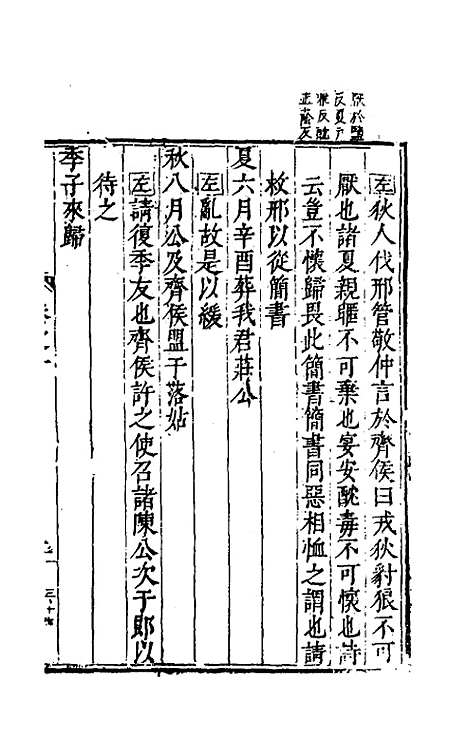 厭於鹽
反夏戶
雅反酖
正蔭反
左狄人伐邢管敬仲言於齊侯曰戎狄豺狼不可
厭也諸夏親暱不可棄也宴安酖毒不可懷也詩
云豈不懷歸畏此簡書簡書同惡相恤之謂也請
救邢以從簡書
夏六月辛酉葬我君莊公
左亂故是以緩
秋八月公及齊侯盟于落姑
左請復季友也齊侯許之使召諸陳公次于郎以
待之
季子來歸